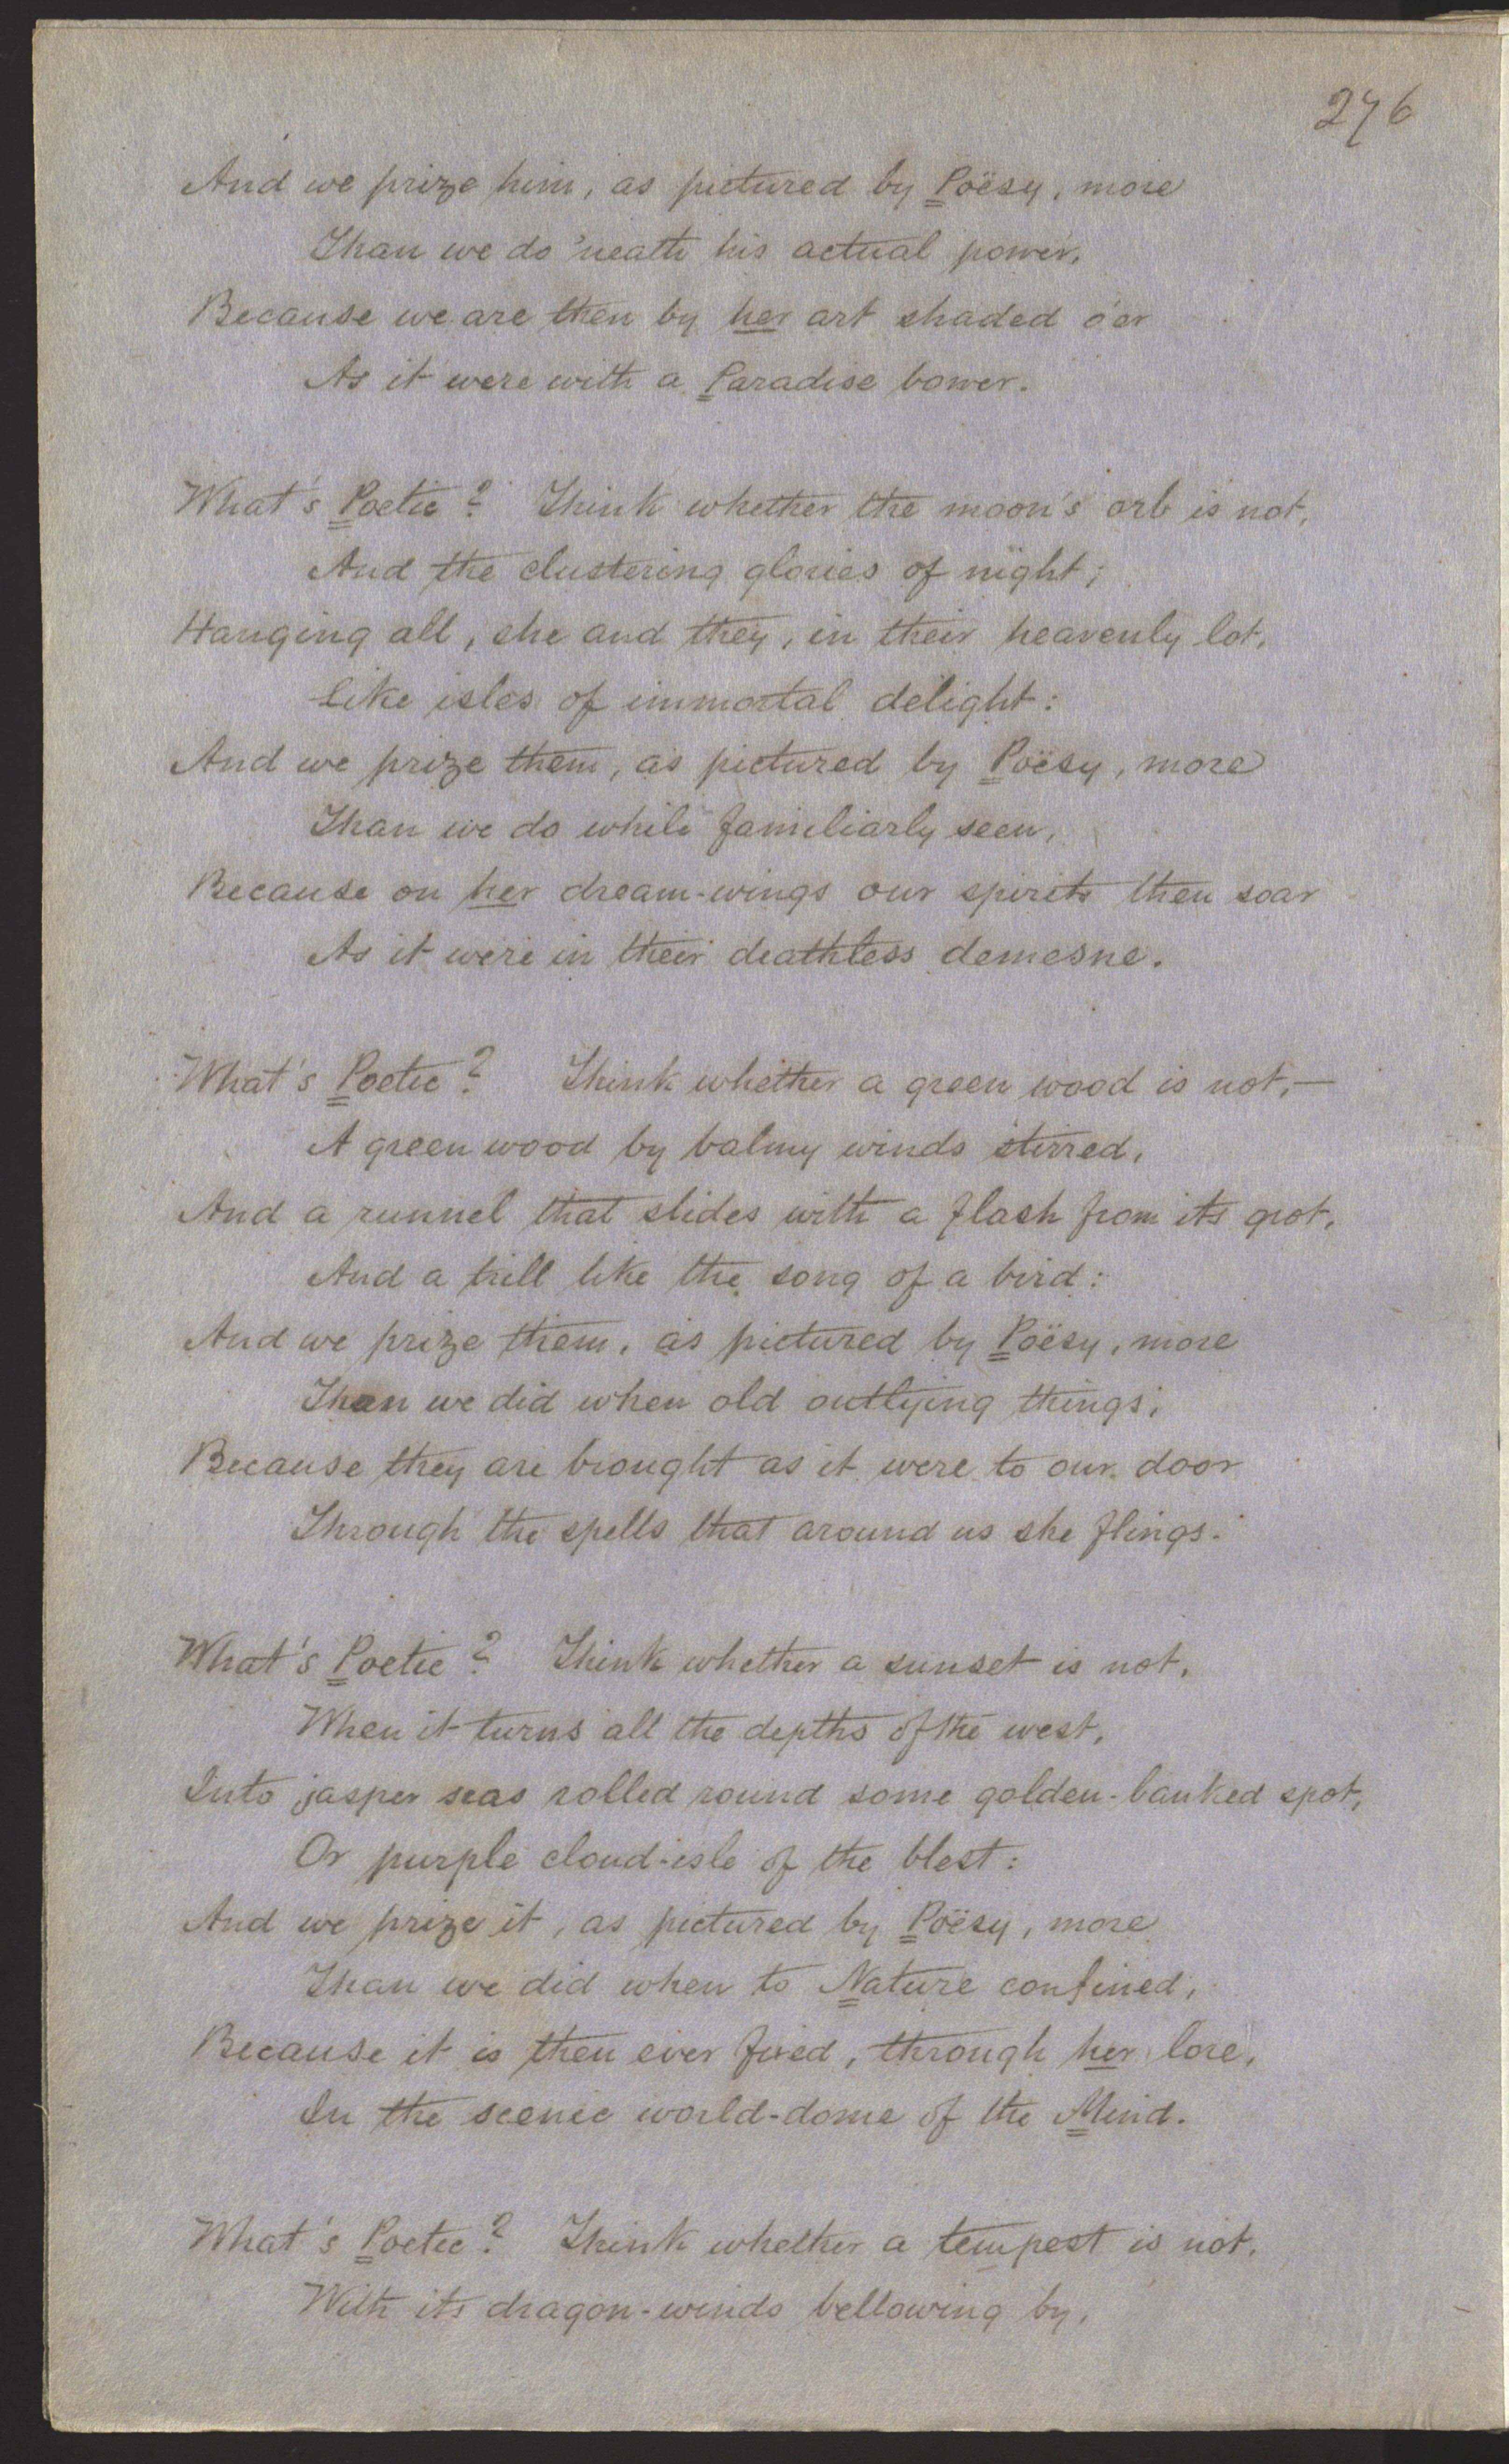 276
And we prize him, as pictured by Poësy, more
Than we do 'neath his actual power,
Because we are then by her art shaded o'er
As it were with a Paradise bower.
What's Poetic? Think whether the moon's orb is not,
And the clustering glories of night;
Hanging all, she and they, in their heavenly lot,
Like isles of immortal delight:
And we prize them, as pictured by Poësy, more
Than we do while familiarly seen,
Because on her dream-wings our spirits then soar
As it were in their deathless demesne.
What's Poetic? Think whether a green wood is not,—
A green wood by balmy winds stirred,
And a runnel that slides with a flash from its grot,
And a trill like the song of a bird:
And we prize them, as pictured by Poësy, more
Than we did when old outlying things;
Because they are brought as it were to our door
Through the spells that around us she flings.
What's Poetic? Think whether a sunset is not,
When it turns all the depths of the west,
Into jasper seas rolled round some golden-banked spot,
Or purple cloud-isle of the blest:
And we prize it, as pictured by Poësy, more
Than we did when to Nature confined,
Because it is then ever fixed, through her lore,
In the scenic world-dome of the Mind.
What's Poetic? Think whether a tempest is not,
With its dragon-winds bellowing by,